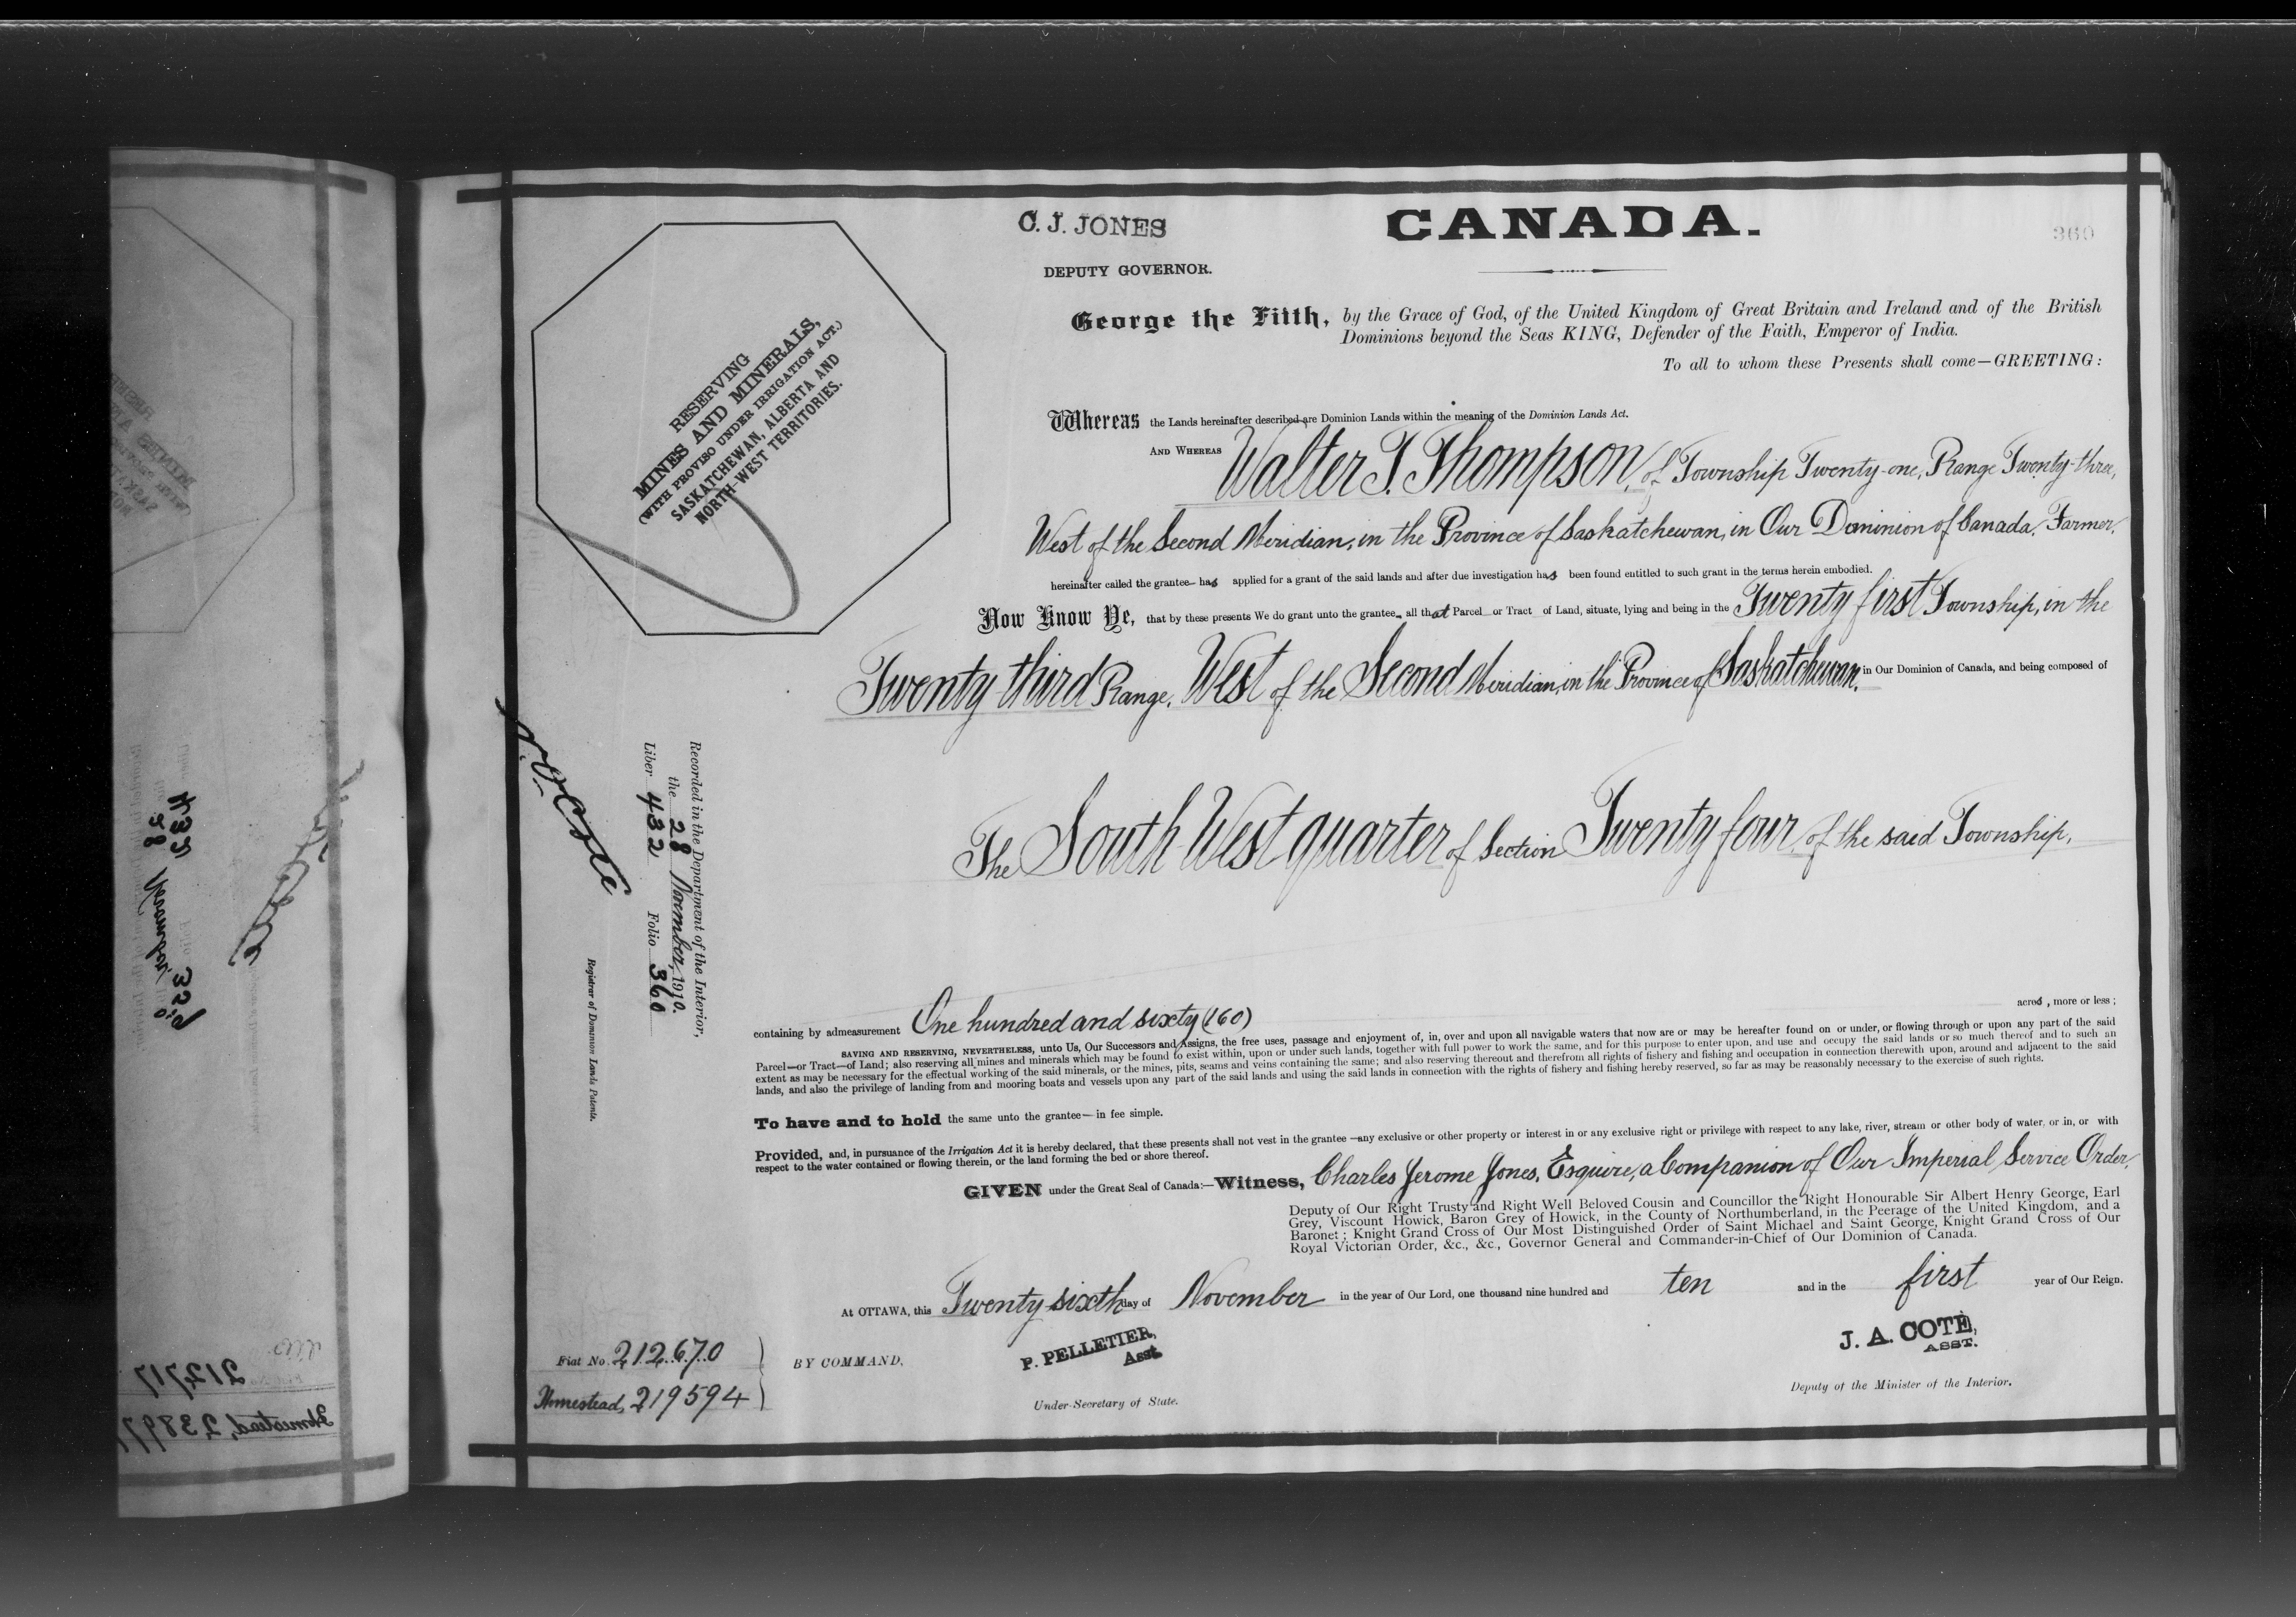 C. J. JONES
CANADA.
360
DEPUTY GOVERNOR.
George the Fifth, by the Grace of God, of the United Kingdom of Great Britain and Ireland and of the British
Dominions beyond the Seas KING, Defender of the Faith, Emperor of India.
To all to whom these Presents shall come—GREETING:
RESERVING
MINES AND MINERALS,
(WITH PROVISO UNDER IRRIGATION ACT.)
SASKATCHEWAN, ALBERTA AND
NORTH-WEST TERRITORIES.
Whereas the Lands hereinafter described are Dominion Lands within the meaning of the Dominion Lands Act.
AND WHEREAS Walter T. Thompson, of Township Twenty-one, Range Twenty-three,
West of the Second Meridian, in the Province of Saskatchewan, in Our Dominion of Canada, Farmer,
hereinafter called the grantee— has applied for a grant of the said lands and after due investigation has been found entitled to such grant in the terms herein embodied.
Now Know Ye, that by these presents We do grant unto the grantee— all that Parcel—or Tract of Land, situate, lying and being in the Twenty first Township, in the
Twenty third Range, West of the Second Meridian, in the Province of Saskatchewan, in Our Dominion of Canada, and being composed of
The South West quarter of Section Twenty four, of the said Township,
Recorded in the Department of the Interior,
the 28 November, 1910.
Liber 432 Folio 360
Registrar of Dominion Lands Patents.
containing by admeasurement One hundred and sixty (160) acres, more or less;
SAVING AND RESERVING, NEVERTHELESS, unto Us, Our Successors and Assigns, the free uses, passage and enjoyment of, in, over and upon all navigable waters that now are or may be hereafter found on or under, or flowing through or upon any part of the said
Parcel—or Tract—of Land; also reserving all mines and minerals which may be found to exist within, upon or under such lands, together with full power to work the same, and for this purpose to enter upon, and use and occupy the said lands or so much thereof and to such an
extent as may be necessary for the effectual working of the said minerals, or the mines, pits, seams and veins containing the same; and also reserving thereout and therefrom all rights of fishery and fishing and occupation in connection therewith upon, around and adjacent to the said
lands, and also the privilege of landing from and mooring boats and vessels upon any part of the said lands and using the said lands in connection with the rights of fishery and fishing hereby reserved, so far as may be reasonably necessary to the exercise of such rights.
To have and to hold the same unto the grantee— in fee simple.
Provided, and, in pursuance of the Irrigation Act it is hereby declared, that these presents shall not vest in the grantee —any exclusive or other property or interest in or any exclusive right or privilege with respect to any lake, river, stream or other body of water, or in, or with
respect to the water contained or flowing therein, or the land forming the bed or shore thereof.
GIVEN under the Great Seal of Canada:—Witness, Charles Jerome Jones, Esquire, a Companion of Our Imperial Service Order,
Deputy of Our Right Trusty and Right Well Beloved Cousin and Councillor the Right Honourable Sir Albert Henry George, Earl
Grey, Viscount Howick, Baron Grey of Howick, in the County of Northumberland, in the Peerage of the United Kingdom, and a
Baronet; Knight Grand Cross of Our Most Distinguished Order of Saint Michael and Saint George, Knight Grand Cross of Our
Royal Victorian Order, &c., &c., Governor General and Commander-in-Chief of Our Dominion of Canada.
At OTTAWA, this Twenty sixth day of November in the year of Our Lord, one thousand nine hundred and ten and in the first year of Our Reign.
Fiat No. 212670
Homestead, 219594
BY COMMAND,
P. PELLETIER,
Asst.
Under-Secretary of State.
J. A. COTÉ,
ASST.
Deputy of the Minister of the Interior.